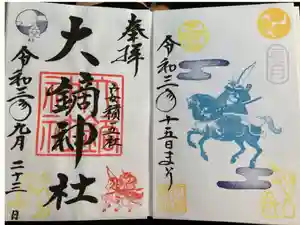 令和三年 十五日まいり
奉拝
安積五社
大鏑神社
令和三年九月二十三日